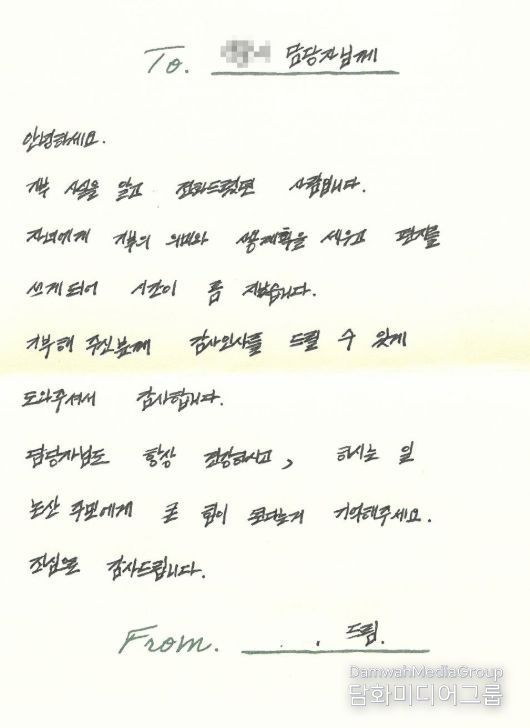 To. 담당자님께
안녕하세요.
기부 사실을 알고 전화드렸던 사람입니다.
자녀에게 기부의 의미와 사용계획을 세우고 편지를
쓰게 되어 시간이 좀 지났습니다.
기부해 주신 분께 감사인사를 드릴 수 있게
도와주셔서 감사합니다.
담당자님도 항상 건강하시고, 하시는 일
논산 주민에게 큰 힘이 된다는거 기억해주세요.
진심으로 감사드립니다.
From. 드림.
DamwahMediaGroup
담화미디어그룹